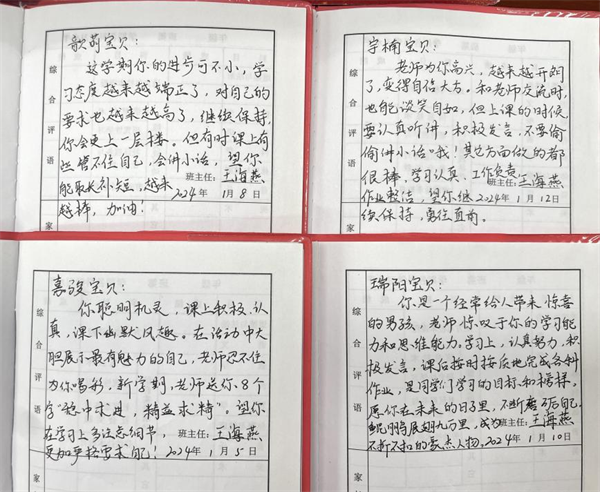 歆萌宝贝：
这学期你的进步可不小，学
习态度越来越端正了，对自己的
要求也越来越高了，继续保持，
你会更上一层楼。但有时课上有
些管不住自己，会讲小话，望你
能取长补短，越来
越棒，加油！
班主任：王海燕
2024年1月8日
综合评语
家
宇楠宝贝：
老师为你高兴，越来越开朗
了，变得自信大方。和老师交流时，
也能谈笑自如，但上课的时候
要认真听讲，积极发言，不要偷
偷讲小话哦！其它方面做的都
很棒，学习认真，工作负责，
作业整洁，望你继
续保持，勇往直前。
班主任：王海燕
2024年1月12日
综合评语
家
嘉骏宝贝：
你聪明机灵，课上积极、认
真，课下幽默风趣。在活动中大
胆展示最有魅力的自己，老师忍不住
为你喝彩，新学期，老师送你8个
字“稳中求进，精益求精”。望你
在学习上多注意细节，
更加严格要求自己！
班主任：王海燕
2024年1月5日
综合评语
家
瑞阳宝贝：
你是一个经常给人带来惊喜
的男孩，老师惊叹于你的学习能
力和思维能力。学习上，认真努力，积
极发言，课后按时按质地完成各科
作业，是同学们学习的目标和榜样。
愿你在未来的日子里，不断磨砺自己，
鲲鹏展翅九万里，成为
不折不扣的豪杰人物。
班主任：王海燕
2024年1月10日
综合评语
家